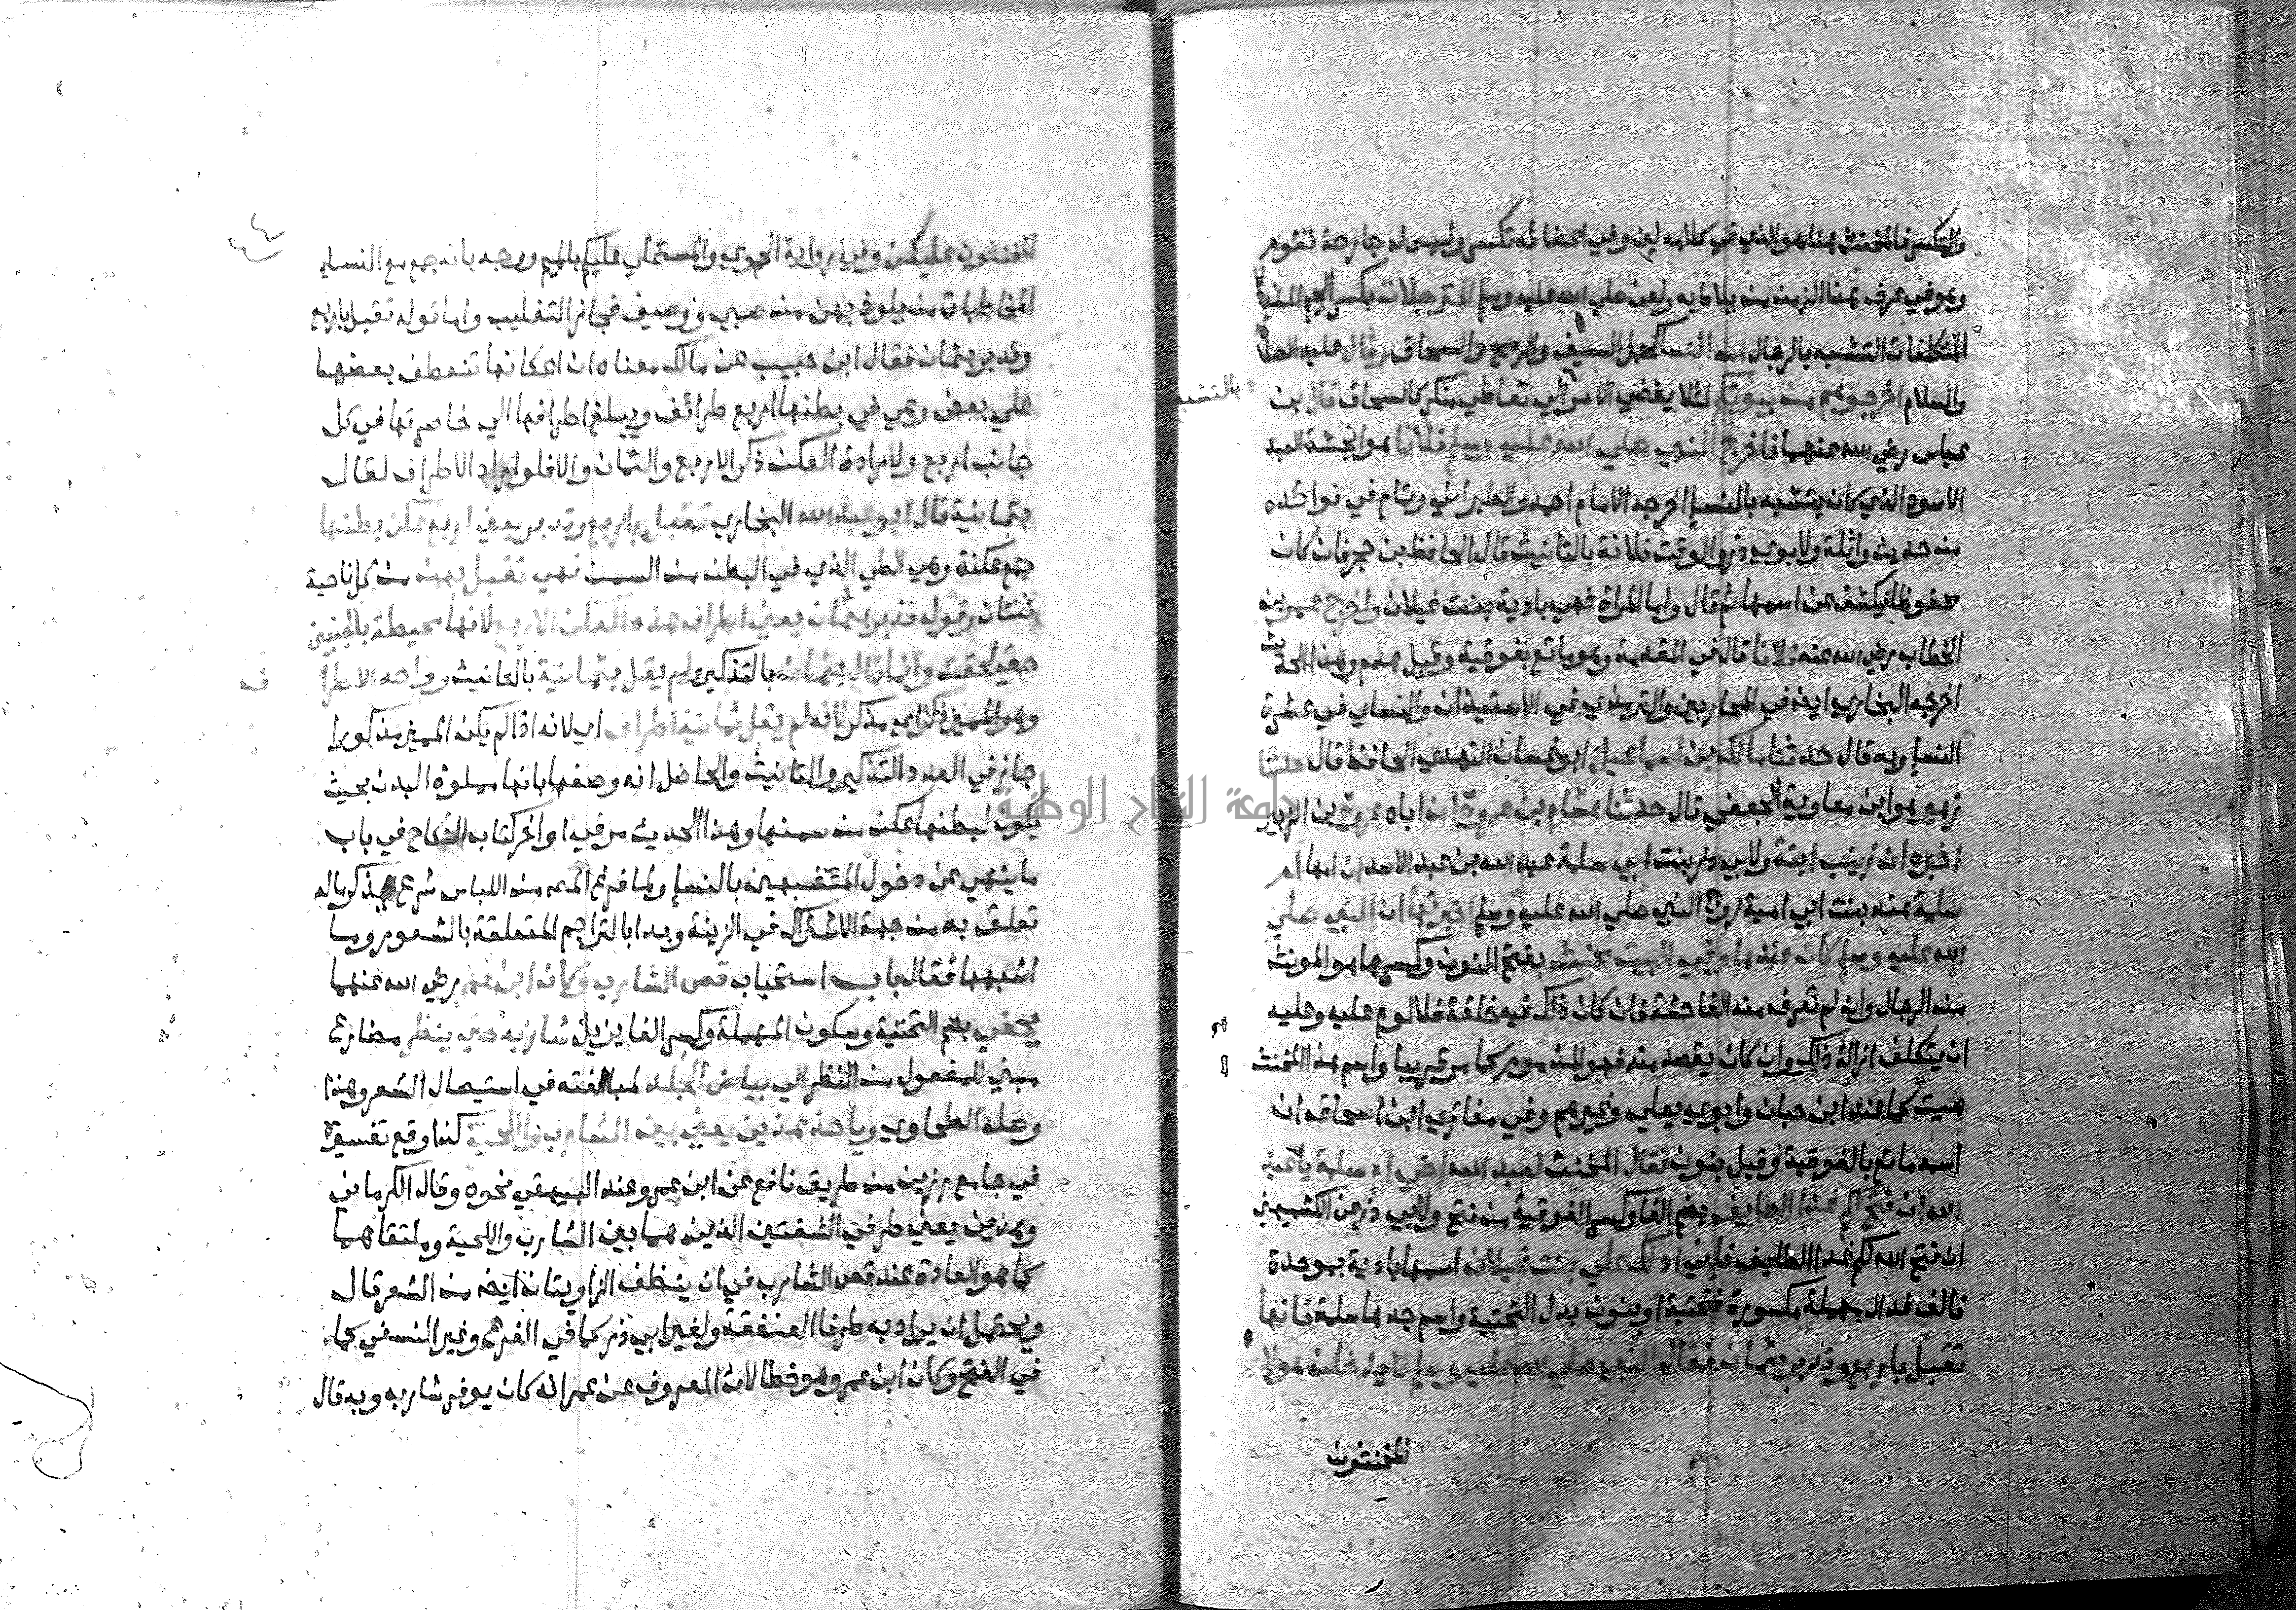 والتكسر فالمخنث هنا هو الذي في كلامه لين وفي اعضائه تكسر وليس له جارحة تقوم
وهو في عرف هذا الزمن من يلاط به ولعن صلي الله عليه وسلم المترجلات بكسر الجيم المشددة
المتكلفات التشبه بالرجال من النسا كحمل السيف والرمح والسحاق وقال عليه الصلاة
والسلام اخرجوهم من بيوتكم لئلا يفضي الامر الي تعاطي منكر كالسحاق قال بن
بالتشبه
عباس رضي الله عنهما فاخرج النبي صلي الله عليه وسلم فلانا هو انجشة العبد
الاسود الذي كان يتشبه بالنسا اخرجه الامام احمد والطبراني وتمام في فوائده
من حديث واثلة ولابوي ذر والوقت فلانة بالتانيث قال الحافظ بن حجر فان كان
محفوظا فيكشف عن اسمها ثم قال واما المراة فهي بادية بنت غيلان واخرج عمر بن
الخطاب رضي الله عنه فلانا قال في المقدمة وهو ماتع بفوقية وقيل هدم وهذا الحديث
اخرجه البخاري ايضا في المحاربين والترمذي في الاستيذان والنساي في عشرة
النسا وبه قال حدثنا مالك بن اسماعيل ابو غسان النهدي الحافظ قال حدثنا
زهير هو ابن معاوية الجعفي قال حدثنا هشام بن عروة ان اباه عروة بن الزبير
اخبره ان زينب ابنة ولابي ذر بنت ابي سلمة عبد الله بن عبد الاسد ان امها ام
سلمة هند بنت ابي امية زوج النبي صلي الله عليه وسلم اخبرتها ان النبي صلي
الله عليه وسلم كان عندها وفي البيت مخنث بفتح النون وكسرها هو المونث
من الرجال وان لم تعرف منه الفاحشة فان كان ذلك فيه خلقة فلا لوم عليه وعليه
ان يتكلف ازالة ذلك وان كان يقصد منه فهو المذموم كما مر قريبا واسم هذا المخنث
هيت كما عند ابن حبان وابوي يعلي وغيرهم وفي مغازي ابن اسحاق ان
اسمه ماتع بالفوقية وقيل بنون فقال المخنث لعبد الله اخي ام سلمة يا عبد
الله ان فتح لكم غدا الطايف بضم الفا وكسر الفوقية من فتح ولابي ذر عن الكشميهني
ان فتح الله لكم غدا الطايف فاني ادلك علي بنت غيلان اسمها بادية بموحدة
فالف فدال مهملة مكسورة فتحتية او بنون بدل التحتية واسم جدها سلمة فانها
تقبل باربع وتدبر بثمان فقال النبي صلي الله عليه وسلم لا يدخلن هولا
المخنثون
المخنثون عليكن وفي رواية الحموي والمستملي عليكم بالميم ووجه بانه جمع مع النساء
المخاطبات من يلوذ بهن من صبي ووصيف فجاز التغليب واما قوله تقبل باربع
وتدبر بثمان فقال ابن حبيب عن مالك معناه ان اعكانها تنعطف بعضها
علي بعض وهي في بطنها اربع طرائف ويبلغ اطرافها الي خاصرتها في كل
جانب اربع ولارادة العكن ذكر الاربع والثمان والا فلو اراد الاطراف لقال
بثمانية قال ابو عبد الله البخاري تقبل باربع وتدبر يعني اربع عكن بطنها
جمع عكنة وهي الطي الذي في البطن من السمن فهي تقبل بهن من كل ناحية
ثنتان وقوله وتدبر بثمان يعني اطراف هذه العكن الاربع لانها محيطة بالجنبين
حتي لحقت وانما قال بثمان بالتذكير ولم يقل بثمانية بالتانيث وواحد الاطراف
وهو المميز ذكر اي مذكر لانه لم يقل ثمانية اطراف اي لانه اذا لم يكن المميز مذكورا
جاز في العدد التذكير والتانيث والحاصل انه وصفها بانها مملوءة البدن بحيث
يكون لبطنها عكن من سمنها وهذا الحديث مر في اواخر كتاب النكاح في باب
ما ينهي عن دخول المتشبهين بالنسا ولما فرغ المص من اللباس شرع يذكر ماله
تعلق به من جهة الاشتراك في الزينة وبدا بالتراجم المتعلقة بالشعور وما
اشبهها فقال باب استحباب قص الشارب وكان ابن عمر رضي الله عنهما
يحفي بضم التحتية وسكون المهملة وكسر الفا يزيل شاربه حتي ينظر مضارع
مبني للمفعول من النظر الي بياض الجلد لمبالغته في استيصال الشعر وهذا
وصله الطحاوي وياخذ هذين يعني بين الشارب واللحية كذا وقع تفسيره
في جامع رزين من طريق نافع عن ابن عمر وعند البيهقي نحوه وقال الكرماني
وهذين يعني طرفي الشفتين الذين هما بين الشارب واللحية وملتقاهما
كما هو العادة عند قص الشارب في ان ينظف الزاويتان ايضا من الشعر قال
ويحتمل ان يراد به طرفا العنفقة ولغير ابي ذر كما في الفرع وغير النسفي كما
في الفتح وكان ابن عمر وهو خطا لان المعروف عن عمر انه كان يوفر شاربه وبه قال
جامعة النجاح الوطنية